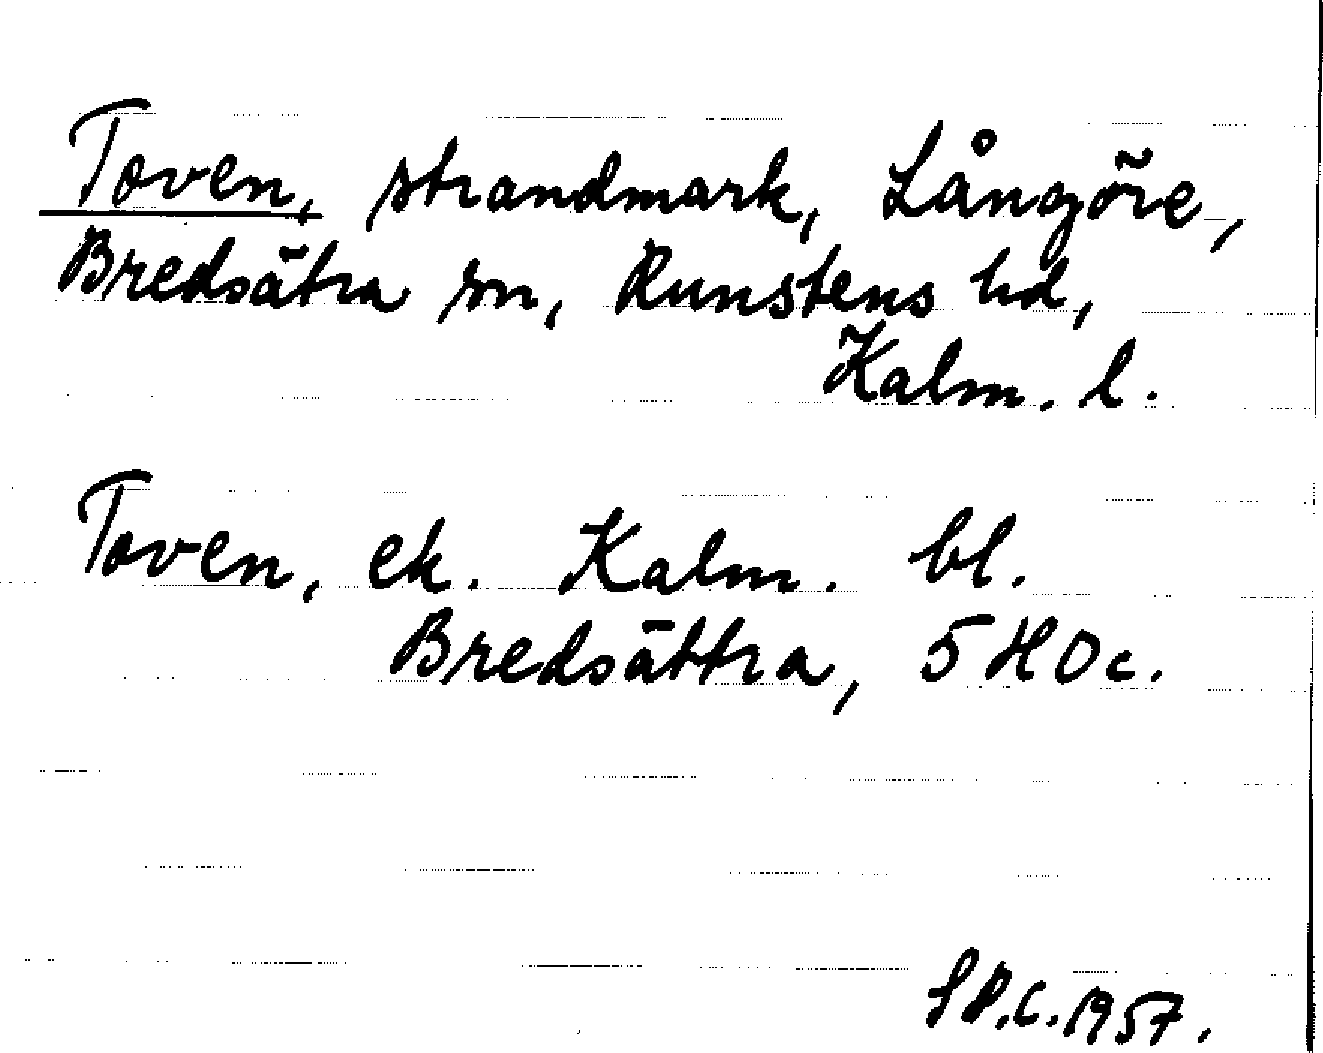 Toven, strandmark, Långöre,
Bredsätra sn, Runstens hd,
Kalm. l.
Toven, ek. Kalm. bl.
Bredsättra, 5 H 0 c.
1957.